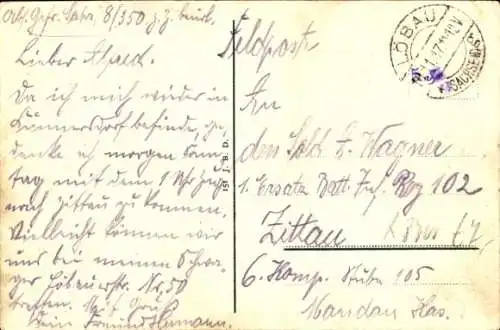 Abs. Gefr. Sahr, 8/350 z. Z. beurl.
Lieber Alfred.
Da ich mich wieder in
Kunnersdorf befinde, ge-
denke ich morgen Sonn-
tag mit dem 1 Uhr Zug
nach Zittau zu kommen,
Vielleicht können wir
uns bei meinen Schwa-
ger Löbauerstr. Nr. 50
treffen. Mit Gruß
Dein Freund Hermann.
151 J. B. D.
Feldpost
LÖBAU
(SACHSEN)
An
den Sold. A. Wagner
1. Ersatz Batl. Inf. Reg 102
Zittau
6. Komp. Stube 105
Mandau Kas.